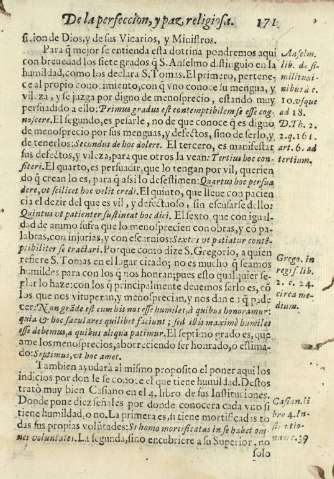 De la perfeccion, y paz religiosa. 171
sicion de Dios, y de sus Vicarios, y Ministros.
Para q̃ mejor se entienda esta dotrina pondremos aqui
con breuedad los siete grados q̃ S. Anselmo distinguio en la
humildad, como los declara S. Tomas. El primero, pertene-
ce al propio conocimiento, con q̃ vno conoce su mengua, y
vileza, y se juzga por digno de menosprecio, estando muy
persuadido a ello: Primus gradus est contemptibilem se esse cog-
noscere. El segundo, es pesarle, no de que conoce es digno
de menosprecio por sus menguas, y defectos, sino de serlo, y
de tenerlos: Secundus de hoc dolere. El tercero, es manifestar
sus defectos, y vileza, para que otros la vean: Tertius hoc con-
fiteri. El quarto, es persuadir, que lo tengan por vil, querien
do q̃ crean lo es, para q̃ assi lo desestimen: Quartus hoc persua
dere, vt scilicet hoc velit credi. El quinto, que lleue con pacien
cia el dezir del que es vil, y defectuoso, sin escusarse dello:
Quintus vt patienter sustineat hoc dici. El sexto, que con igual-
dad de animo sufra que lo menosprecien con obras, y cõ pa-
labras, con injurias, y con escarnios: Sextus vt patiatur contẽ-
ptibiliter se tractari. Porque como dize S. Gregorio, a quien
refiere S. Tomas en el lugar citado; no es mucho q̃ seamos
humildes para con los q̃ nos honran; pues esto qualquier se-
glar lo haze: con los q̃ principalmente deuemos serlo, es cõ
los que nos vituperan, y menosprecian, y nos dan en q̃ pade
cer: Non grãde est cum bis nos esse humiles, à quibus honoramur;
quia & hoc sæculares quilibet faciunt; sed illis maxime humiles
esse debemus, a quibus aliqua patimur. El septimo grado es, que
ame los menosprecios, aborreciendo ser honrado, o estima-
do: Septimus, vt hoc amet.
Tambien ayudarà al mismo proposito el poner aqui los
indicios por donde se conoce el que tiene humildad. Destos
tratò muy bien Casiano en el 4. libro de sus Instituciones.
Donde pone diez señales por donde conocera cada vno si
tiene humildad, o no. La primera es, si tiene mortificadas to
das sus propias volũtades: Si homo mortificatas in se habet om-
nes voluntates. La segunda, sino encubriere a su Superior, no
solo
Anselm.
lib. de si-
militudi-
nibus à c.
10. vsque
ad 18.
D. Th. 2.
2. q. 161.
art. 6. ad
tertium.
Grego. in
regist lib.
2. c. 24.
circa me-
dium.
Casian. li
bro 4. In-
stitutio-
num c. 39